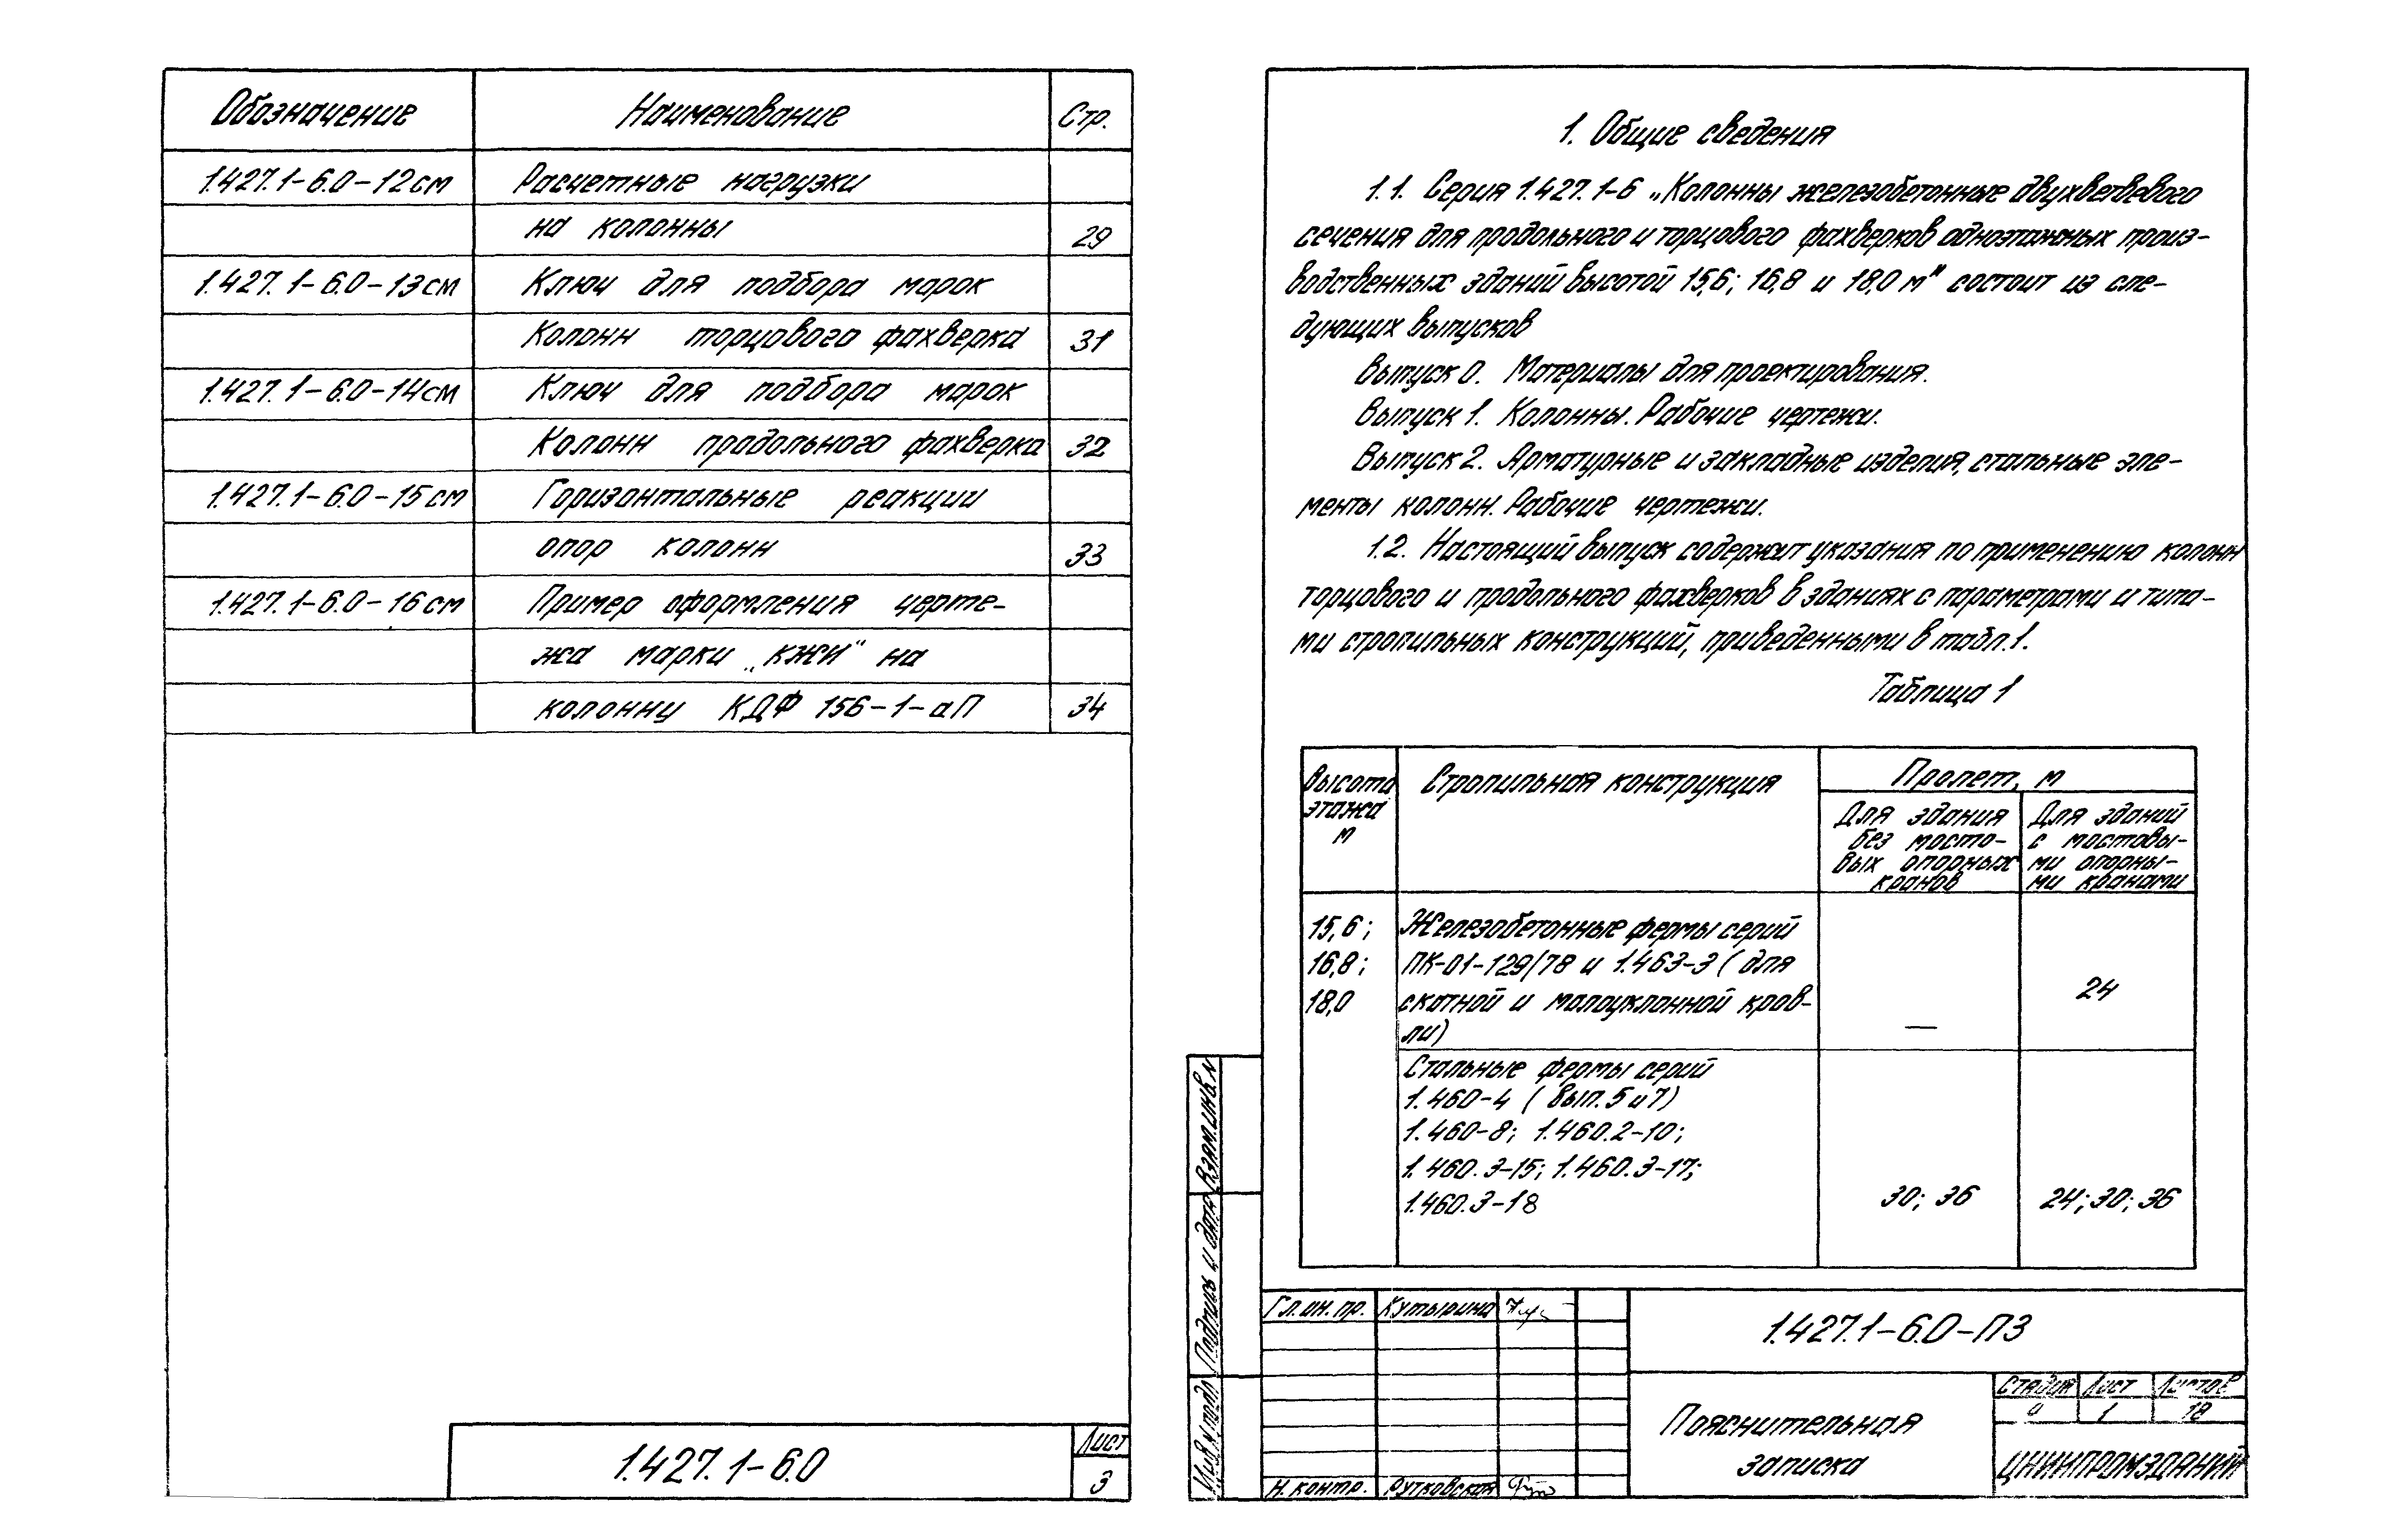 Обозначение Наименование Стр.
1.427.1-6.0-12см Расчетные нагрузки
на колонны 29
1.427.1-6.0-13см Ключ для подбора марок
Колонн торцового фахверка 31
1.427.1-6.0-14см Ключ для подбора марок
Колонн продольного фахверка 32
1.427.1-6.0-15см Горизонтальные реакции
опор колонн 33
1.427.1-6.0-16см Пример оформления черте-
жа марки „КЖИ" на
колонну КДФ 156-1-аП 34
1.427.1-6.0
Лист
3
1. Общие сведения
1.1. Серия 1.427.1-6 „Колонны железобетонные двухветвевого
сечения для продольного и торцового фахверков одноэтажных произ-
водственных зданий высотой 15,6; 16,8 и 18,0 м" состоит из сле-
дующих выпусков
Выпуск 0. Материалы для проектирования.
Выпуск 1. Колонны. Рабочие чертежи.
Выпуск 2. Арматурные и закладные изделия, стальные эле-
менты колонн. Рабочие чертежи.
1.2. Настоящий выпуск содержит указания по применению колонн
торцового и продольного фахверков в зданиях с параметрами и типа-
ми стропильных конструкций, приведенными в табл.1.
Таблица 1
Высота
этажа
м
Стропильная конструкция
Пролет, м
Для здания
без мосто-
вых опорных
кранов
Для зданий
с мостовы-
ми опорны-
ми кранами
15,6;
16,8;
18,0
Железобетонные фермы серий
ПК-01-129/78 и 1.463-3 (для
скатной и малоуклонной кров-
ли)
—
24
Стальные фермы серий
1.460-4 (Вып. 5 и 7)
1.460-8; 1.460.2-10;
1.460.3-15; 1.460.3-17;
1.460.3-18
30; 36
24; 30; 36
Взам.инв.N
Подпись и дата
Инв.N подл
Гл.ин.пр. Кутырина
Н.контр. Рутковская
1.427.1-6.0-ПЗ
Пояснительная
записка
Стадия Лист Листов
1 18
ЦНИИПРОМЗДАНИЙ